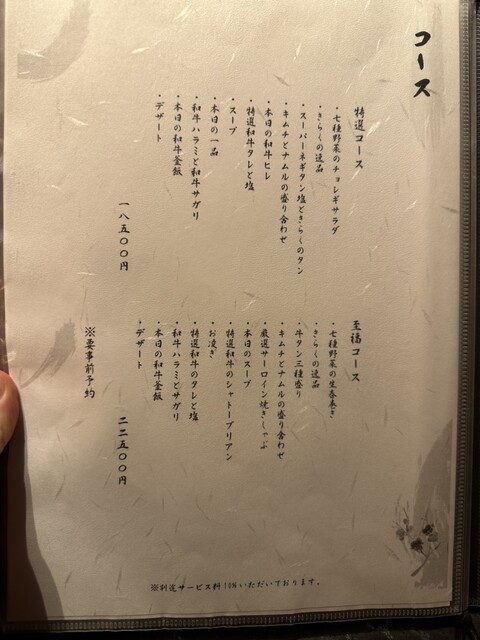 コース
特選コース
・七種野菜のチョレギサラダ
・きらくの逸品
・スーパーネギタン塩ときらくのタン
・キムチとナムルの盛り合わせ
・本日の和牛ヒレ
・特選和牛タレと塩
・スープ
・本日の一品
・和牛ハラミと和牛サガリ
・本日の和牛釜飯
・デザート
一八五〇〇円
至福コース
・七種野菜の生春巻き
・きらくの逸品
・牛タン三種盛り
・キムチとナムルの盛り合わせ
・厳選サーロイン焼きしゃぶ
・本日のスープ
・特選和牛のシャトーブリアン
・お凌ぎ
・特選和牛のタレと塩
・和牛ハラミとサガリ
・本日の和牛釜飯
・デザート
二二五〇〇円
※要事前予約
※別途サービス料10%いただいております。